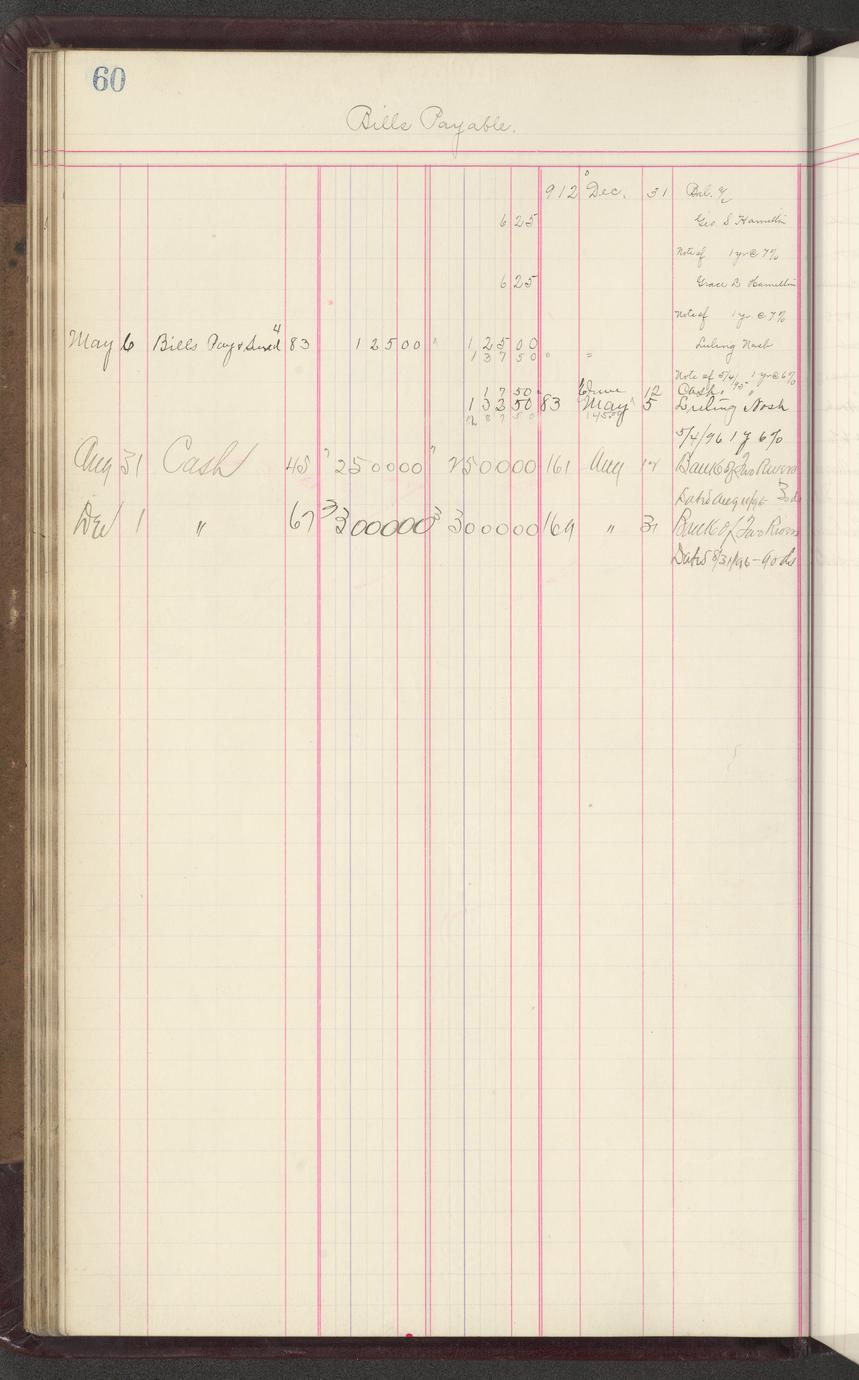 60
Bills Payable.
912 Dec. 31 Bal. %
6 25 Geo. S. Hamilton
Note of 1 yr @ 7%
6 25 Grace B Hamilton
Note of 1 yr. @ 7%
May 6 Bills Pay & 83 1 25 00 1 25 00 Luling Nash
1 37 50 " "
Note of 5/4/95 1 yr @ 6%
1 7 50 June 12 Cash, "
1 32 50 83 May 5 Luling Nash
5/4/96 1 y 6%
Aug 31 Cash 45 2500 00 2500 00 161 Aug 12 Bank of Two Rivers
Dated Aug 11/96 30 ds
Dec 1 " 67 3000 00 3000 00 169 " 31 Bank of Two Rivers
Dated 8/31/96 - 90 ds